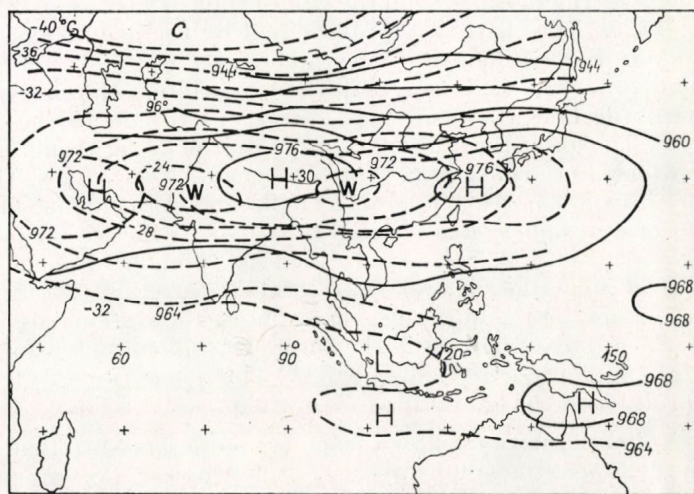 -40°C
C
-36
-32
944
944
96°
976
972
-24
972
972
976
960
H
W
H
+30
W
H
972
-28
-32
964
968
968
60
90°
L
20
150
968
H
H
968
964